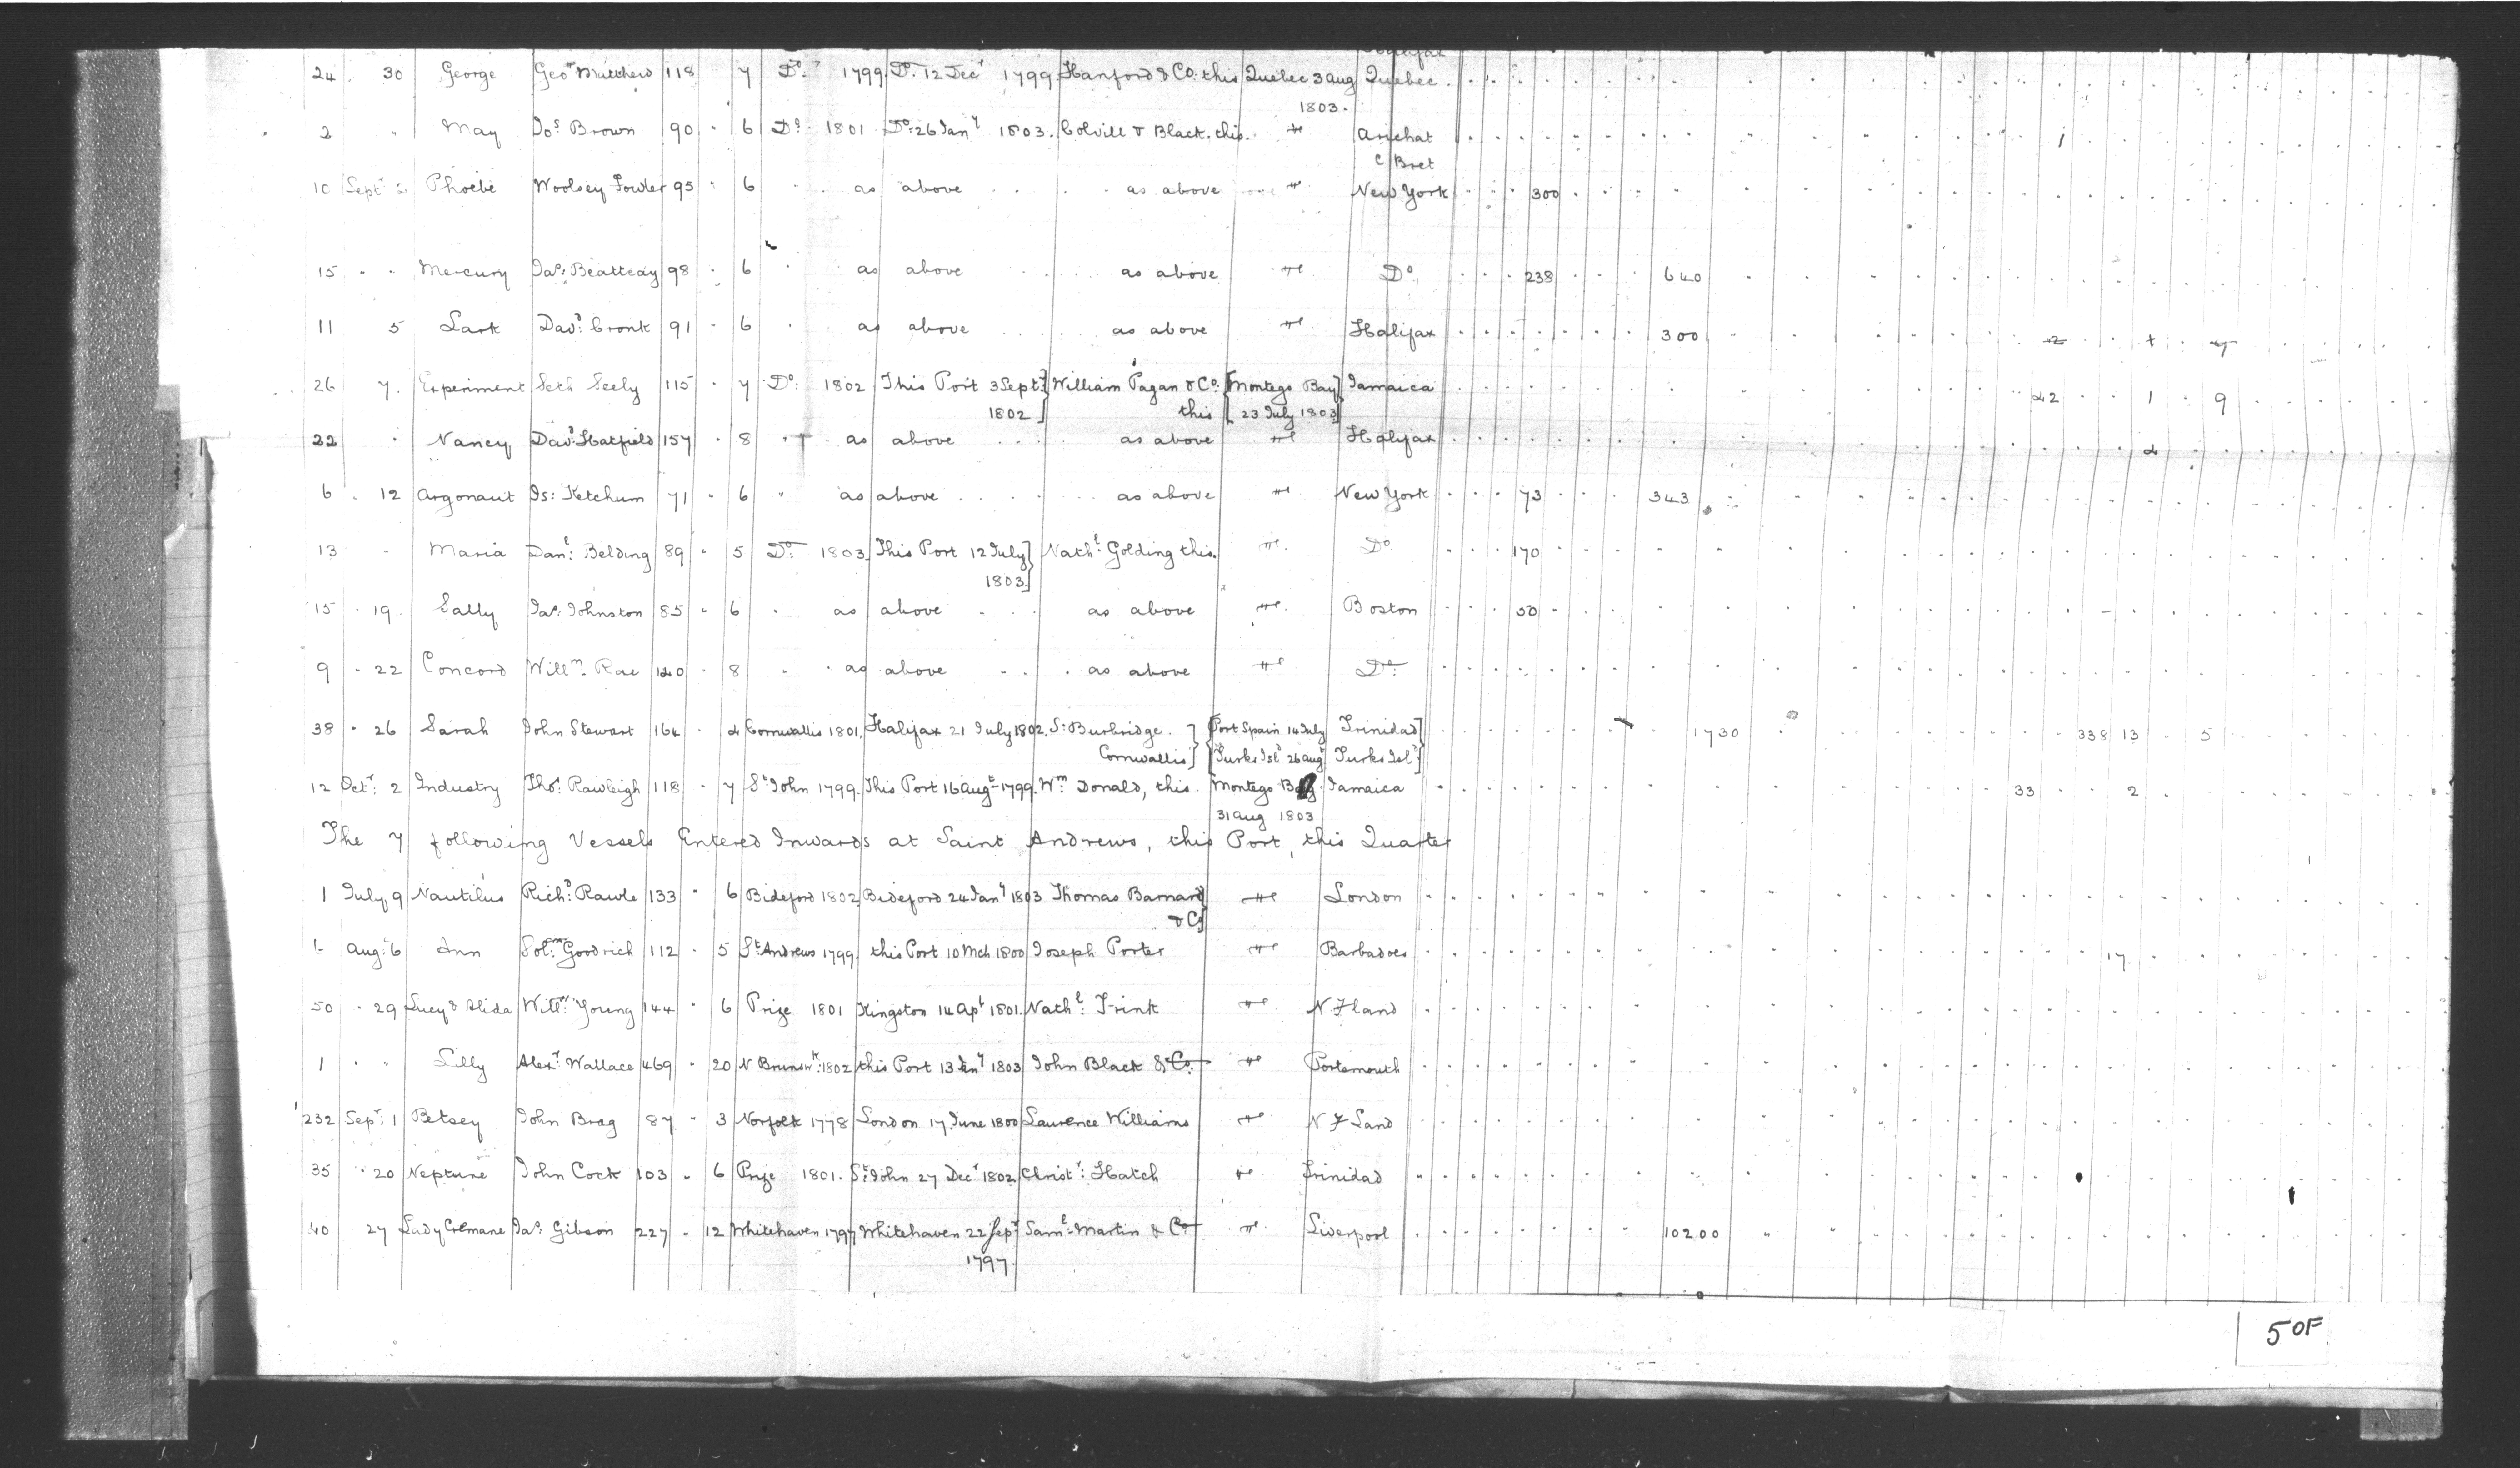 Halifax
24 . 30 George Geo: Matthew 118 7 Do: 1799 Do. 12 Decr 1799 Hanford & Co. this Quebec 3 aug Quebec
1803.
2 " May Jos Brown 90 6 Do. 1801 Do: 26 Jany 1803. Colvill & Black, this. Arichat 1
C Bret
10 Septr 2 Phoebe Woolsey Fowler 95 6 as above as above New York 300
15 " " Mercury Jas: Beatteay 98 6 as above as above Do 238 640
11 5 Lark Davd: Cronk 91 6 as above as above Halifax 300
26 7. Experiment Seth Seely 115 7 Do: 1802 This Port 3 Septr William Pagan & Co. Montego Bay Jamaica 42 1 9
1802 this 23 July 1803
22 " Nancy Davd: Hatfield 157 8 as above as above Halifax
6 . 12 Argonaut Is: Ketchum 71 6 as above as above New York 73 343
13 - Maria Danl: Belding 89 5 Do: 1803. This Port 12 July Nathl: Golding this. Do 170
1803.
15 19. Sally Jas: Johnston 85 6 as above as above Boston 50
9 - 22 Concord Willm: Rae 140 8 as above as above Do:
38 " 26 Sarah John Stewart 164 4 Cornwallis 1801. Halifax 21 July 1802. S: Burbridge. Port Spain 14 July Trinidad 1730 338 13 5
Cornwallis Turks Isd 26 aug Turks Isl
12 Octr: 2 Industry Thos: Rawleigh 118 7 St John 1799. This Port 16 Augt 1799. Wm Donald, this. Montego Bay. Jamaica 33 2
31 aug 1803
The 7 following Vessels Entered Inwards at Saint Andrews, this Port, this Quarter
1 July 9 Nautilus Richd: Rawle 133 6 Bideford 1802 Bideford 24 Jany 1803 Thomas Barnard London
& Co
1- Aug: 6 Ann Solm: Goodrich 112 5 St Andrews 1799. this Port 10 Mch 1800 Joseph Porter Barbadoes 17
50 " 29 Lucy & Alida Willm: Young 144 6 Prize 1801 Kingston 14 Apl 1801. Nathl: Frink N Fland
1 " " Lilly Alexr: Wallace 469 20 N Brunswk: 1802 this Port 13 Jany 1803 John Black & Co. Portsmouth
232 Sepr: 1 Betsey John Brag 87 3 Norfolk 1778 London 17 June 1800 Laurence Williams N F Land
35 " 20 Neptune John Cock 103 6 Prize 1801. St John 27 Decr 1802 Christr: Hatch Trinidad
40 27 Lady Cremane Jas. Gibson 227 12 Whitehaven 1797 Whitehaven 22 Sept Saml: Martin & Co Liverpool 10200
1797.
5 OF